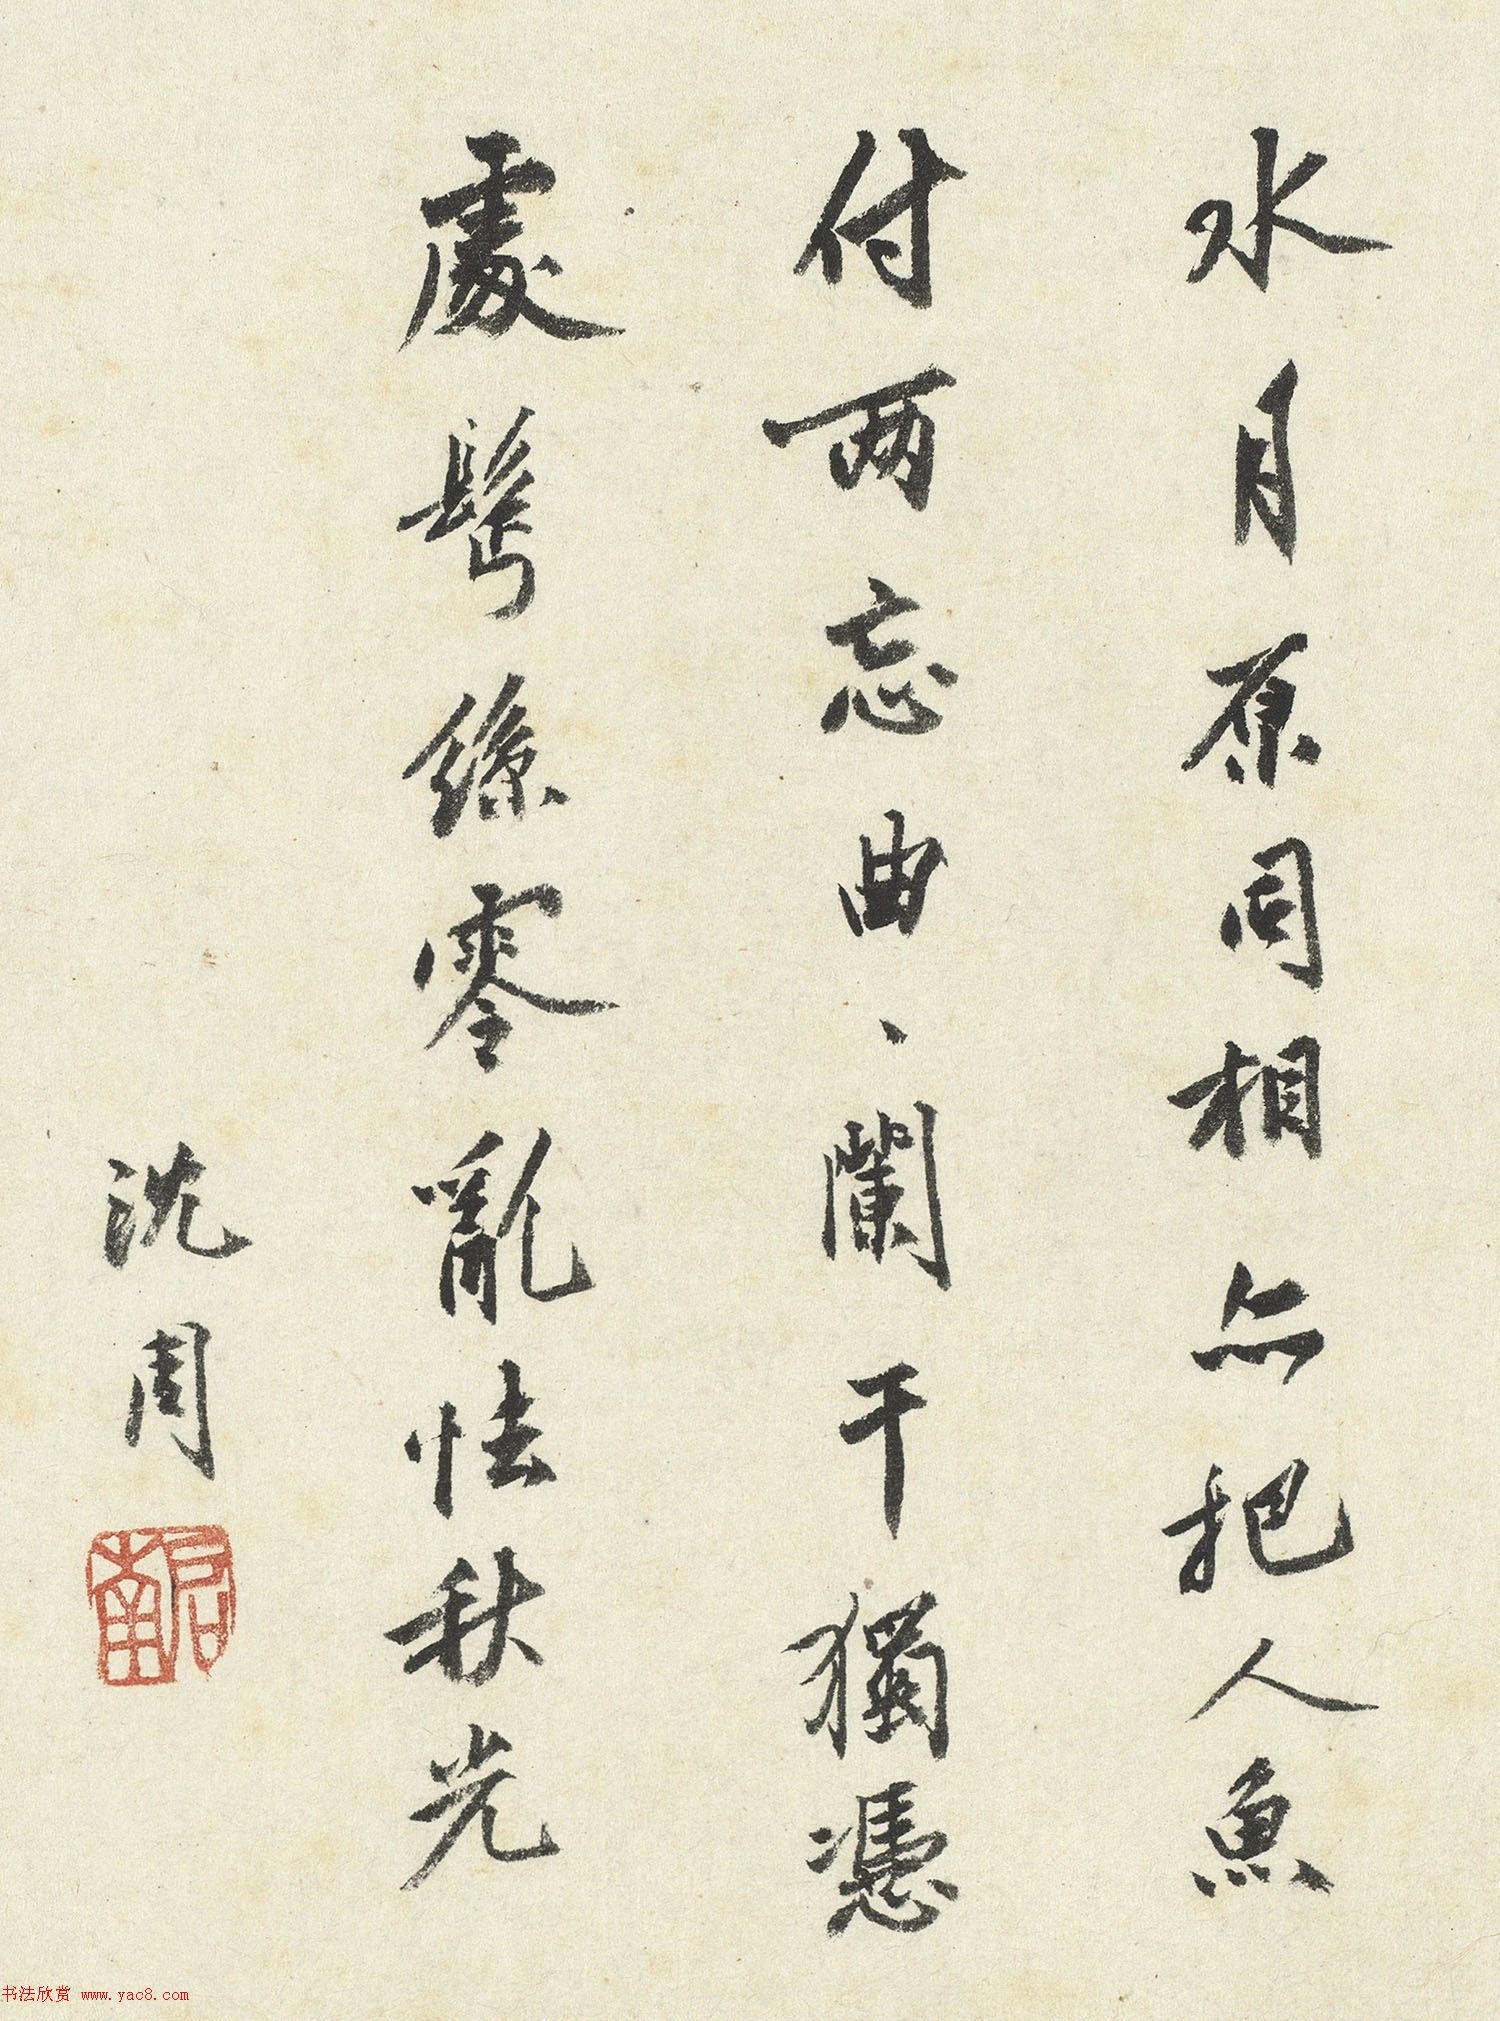 水月原同相亦把人魚
付两忘曲、闌干獨憑
處鬢絲零亂怯秋光
沈周
启南
书法欣赏 www.yac8.com